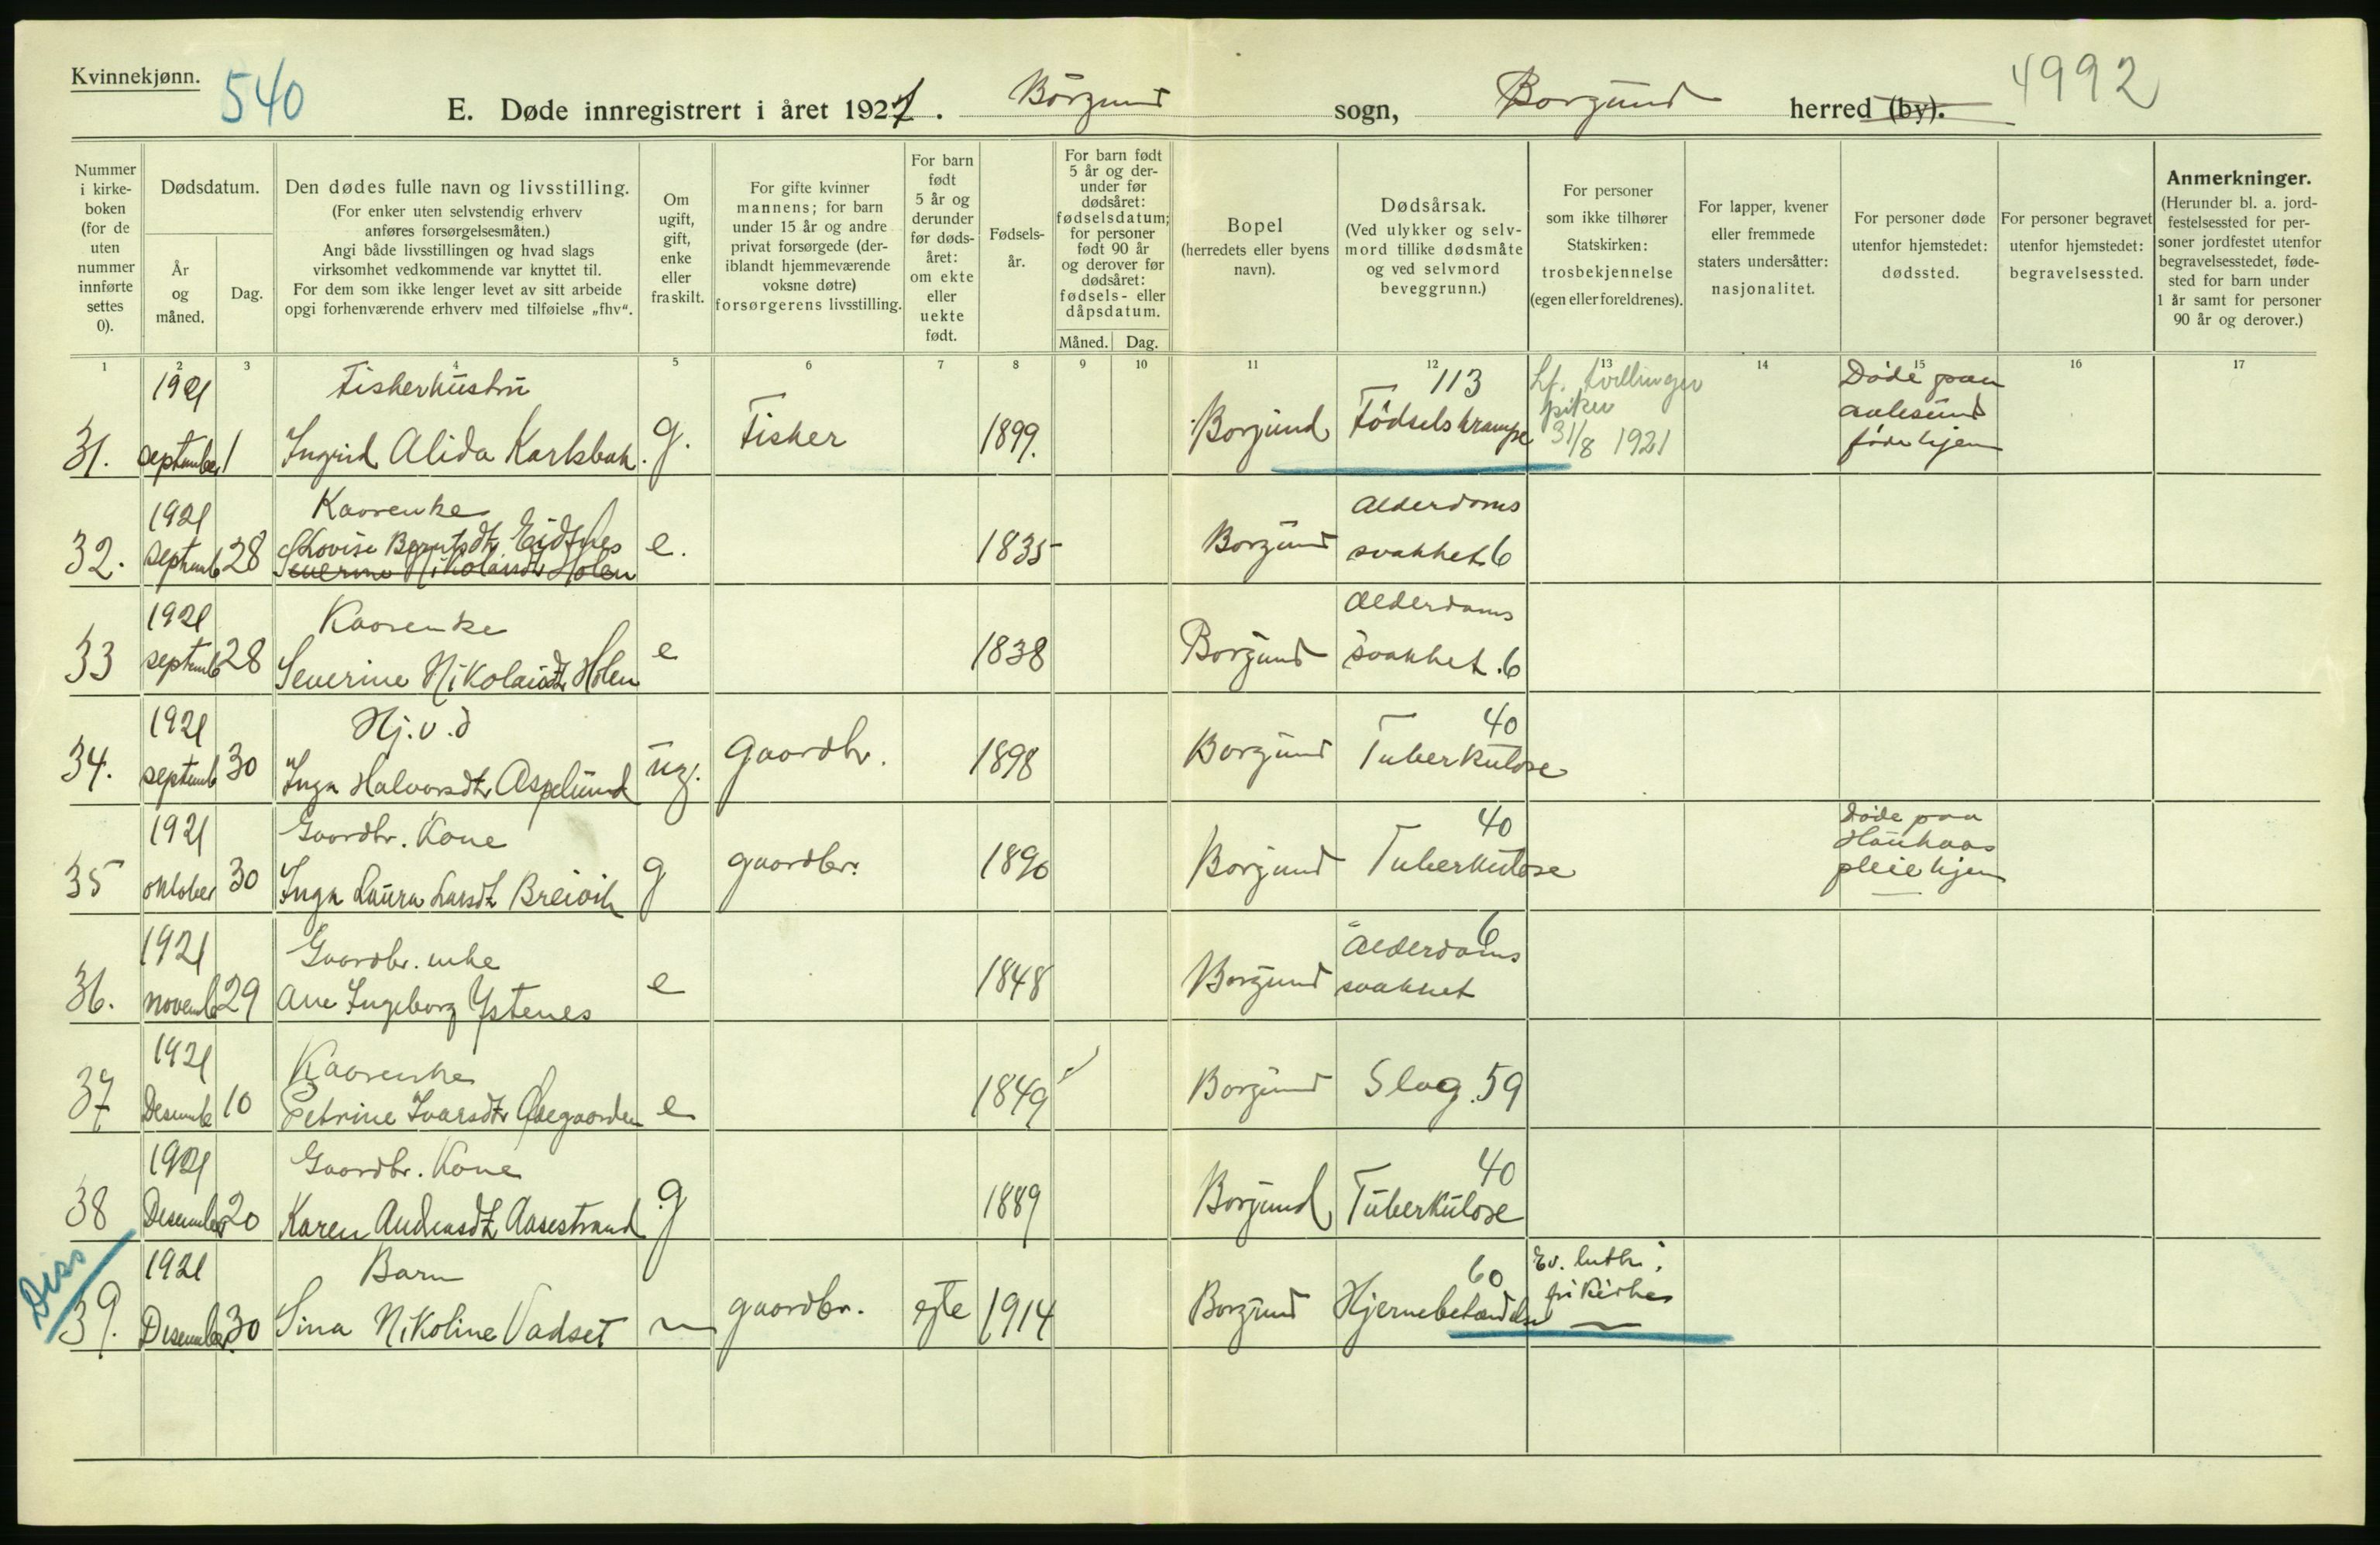 Kvinnekjønn.
540
E. Døde innregistrert i året 1921. Borgund sogn, Borgund herred (by).
4992
Nummer i kirke-boken (for de uten nummer innførte settes 0).
Dødsdatum.
År og måned.
Dag.
Den dødes fulle navn og livsstilling.
(For enker uten selvstendig erhverv anføres forsørgelsesmåten.)
Angi både livsstillingen og hvad slags virksomhet vedkommende var knyttet til.
For dem som ikke lenger levet av sitt arbeide opgi forhenværende erhverv med tilføielse „fhv“.
Om ugift, gift, enke eller fraskilt.
For gifte kvinner mannens; for barn under 15 år og andre privat forsørgede (deriblandt hjemmeværende voksne døtre) forsørgerens livsstilling.
For barn født 5 år og derunder før dødsåret: om ekte eller uekte født.
Fødsels-år.
For barn født 5 år og derunder før dødsåret: fødselsdatum; for personer født 90 år og derover før dødsåret: fødsels- eller dåpsdatum.
Måned. Dag.
Bopel (herredets eller byens navn).
Dødsårsak.
(Ved ulykker og selvmord tillike dødsmåte og ved selvmord beveggrunn.)
For personer som ikke tilhører Statskirken: trosbekjennelse (egen eller foreldrenes).
For lapper, kvener eller fremmede staters undersåtter: nasjonalitet.
For personer døde utenfor hjemstedet: dødssted.
For personer begravet utenfor hjemstedet: begravelsessted.
Anmerkninger.
(Herunder bl. a. jordfestelsessted for personer jordfestet utenfor begravelsesstedet, fødested for barn under 1 år samt for personer 90 år og derover.)
1 2 3 4 5 6 7 8 9 10 11 12 13 14 15 16 17
1921 Fiskerhustru 113 Lf. tvillinger Døde paa
piker aalesund
31. september 1 Ingrid Alida Karlsbak. g. Fisker 1899. Borgund Fødselskrampe 31/8 1921 fødehjem
1921 Kaarenke Alderdoms
32. septemb 28 Lovise Berntsdtr. Eidsnes e. 1835 Borgund svakhet 6
Severine Nikolaisdtr Holen
1921 Kaarenke Alderdoms
33 septemb 28 Severine Nikolaisdtr Holen e 1838 Borgund svakhet. 6
1921 Hj.v.d 40
34. septemb 30 Inga Halvorsdtr Aspelund ug. gaardbr. 1898 Borgund Tuberkulose
1921 Gaardbr. Kone 40 Døde paa
35 oktober 30 Inga Laura Larsdt Breivik g gaardbr. 1890 Borgund Tuberkulose pleiehjem
1921 Gaardbr. enke Alderdoms 6
36. novemb 29 Ane Ingeborg Ystenes e 1848 Borgund svakhet
1921 Kaarenke
37 Desemb 10 Petrine Ivarsdtr Ødegaarden e 1849 Borgund Slag. 59
1921 Gaardbr. Kone 40
38 Desember 20 Karen Andreasdt Aasestrand g 1889 Borgund Tuberkulose
Diss
1921 Barn 60 Ev. luth.
39. Desember 30 Sina Nikoline Vadset gaardbr. egte 1914 Borgund Hjernebetændelse frikirke